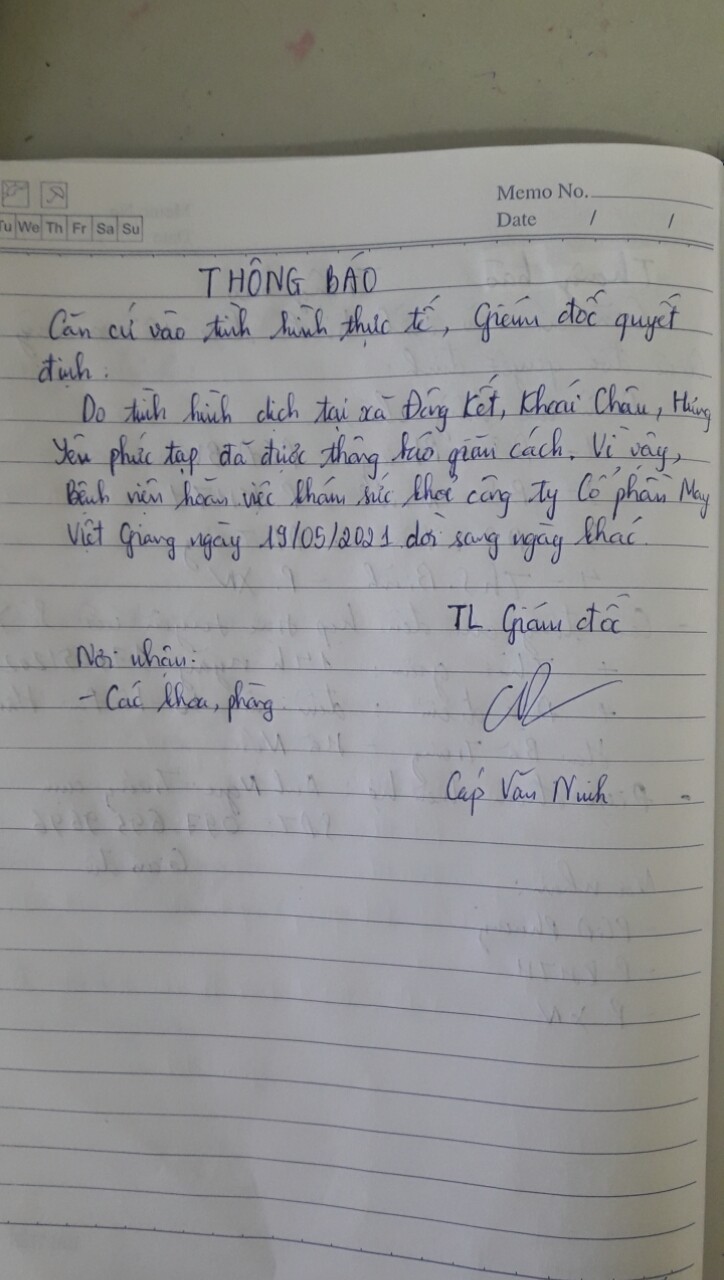 Memo No.
Tu We Th Fr Sa Su
Date / /
THÔNG BÁO
Căn cứ vào tình hình thực tế, Giám đốc quyết
định:
Do tình hình dịch tại xã Đông Kết, Khoái Châu, Hưng
Yên phức tạp đã được thông báo giãn cách. Vì vậy,
Bệnh viện hoãn việc khám sức khoẻ công ty Cổ phần May
Việt Giang ngày 19/05/2021 dời sang ngày khác.
TL Giám đốc
Nơi nhận:
- Các khoa, phòng
Cáp Văn Ninh